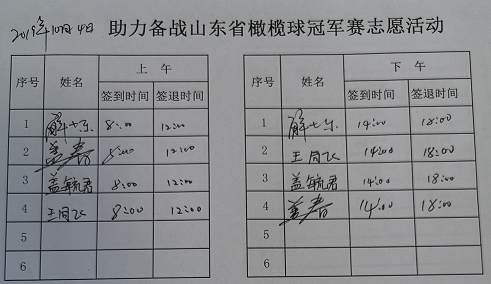 2019年10月4日 助力备战山东省橄榄球冠军赛志愿活动
序号 姓名 上 午
签到时间 签退时间
1 8:00 12:00
2 盖春 8:00 12:00
3 盖毓君 8:00 12:00
4 王同飞 8:00 12:00
5
6
序号 姓名 下 午
签到时间 签退时间
1 14:00 18:00
2 王同飞 14:00 18:00
3 盖毓君 14:00 18:00
4 盖春 14:00 18:00
5
6